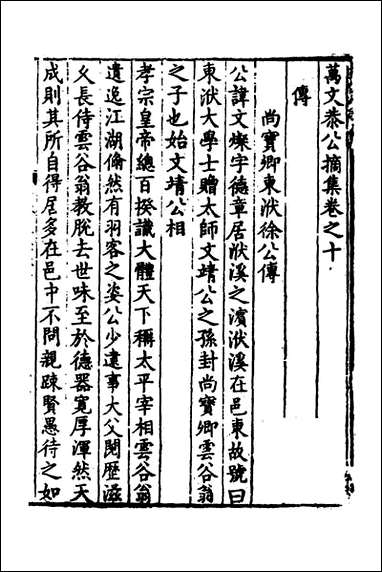 萬文恭公摘集卷之十
傳
尚寶卿東洑徐公傳
公諱文燦字德章居洑溪之濱洑溪在邑東故號曰
東洑大學士贈太師文靖公之孫封尚寶卿雲谷翁
之子也始文靖公相
孝宗皇帝總百揆識大體天下稱太平宰相雲谷翁
遺逸江湖翛然有羽客之姿公少逮事大父閱歷滋
久長侍雲谷翁教脫去世味至於德器寬厚渾然天
成則其所自得居多在邑中不問親疎賢愚待之如